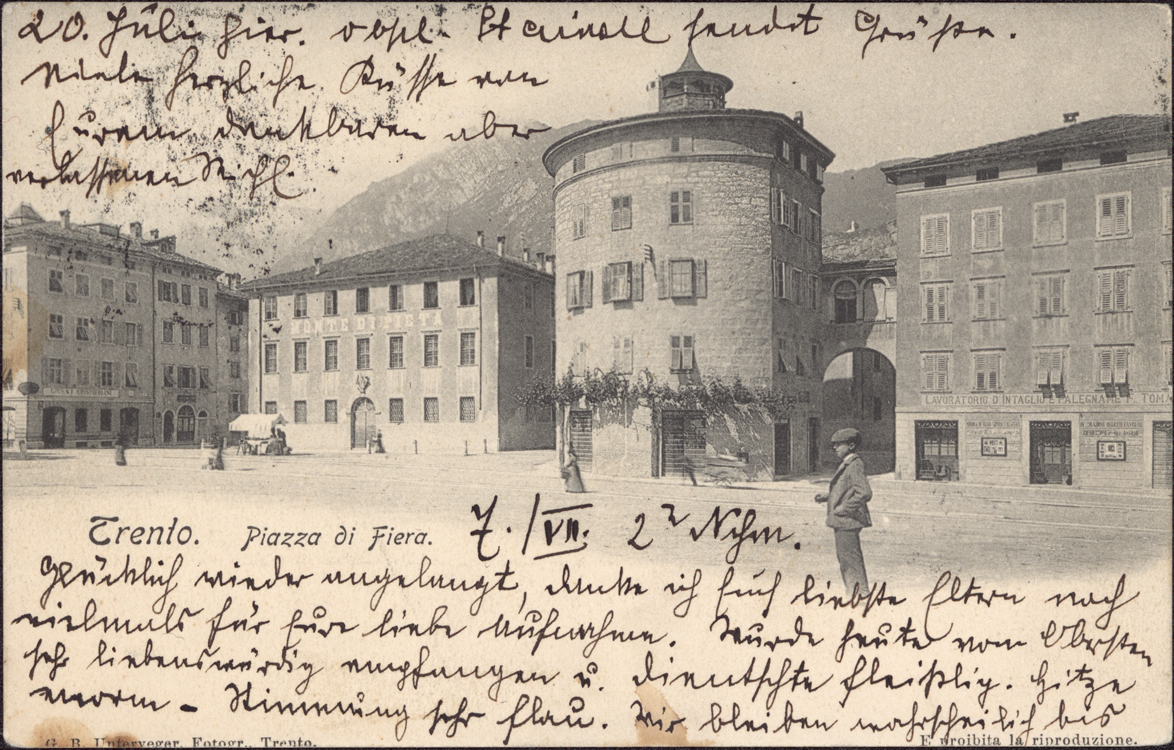 20. Juli hier. obstl. sendet Grüße.
Viele herzliche Küsse von
Eurem dankbaren aber
verlassenen
MONTE DI PIETÀ
LAVORATORIO D'INTAGLIO E FALEGNAME F. TOMA
Trento. Piazza di Fiera. 7./VII. 2² Nchm.
Glücklich wieder angelangt, danke ich Euch liebste Eltern noch
vielmals für Eure liebe Aufnahme. Wurde heute vom Obersten
sehr liebenswürdig empfangen u. dientschte fleißig. Hitze
enorm – Stimmung sehr flau. Wir bleiben wahrscheinlich bis
G. B. Unterveger, Fotogr., Trento.
E proibita la riproduzione.